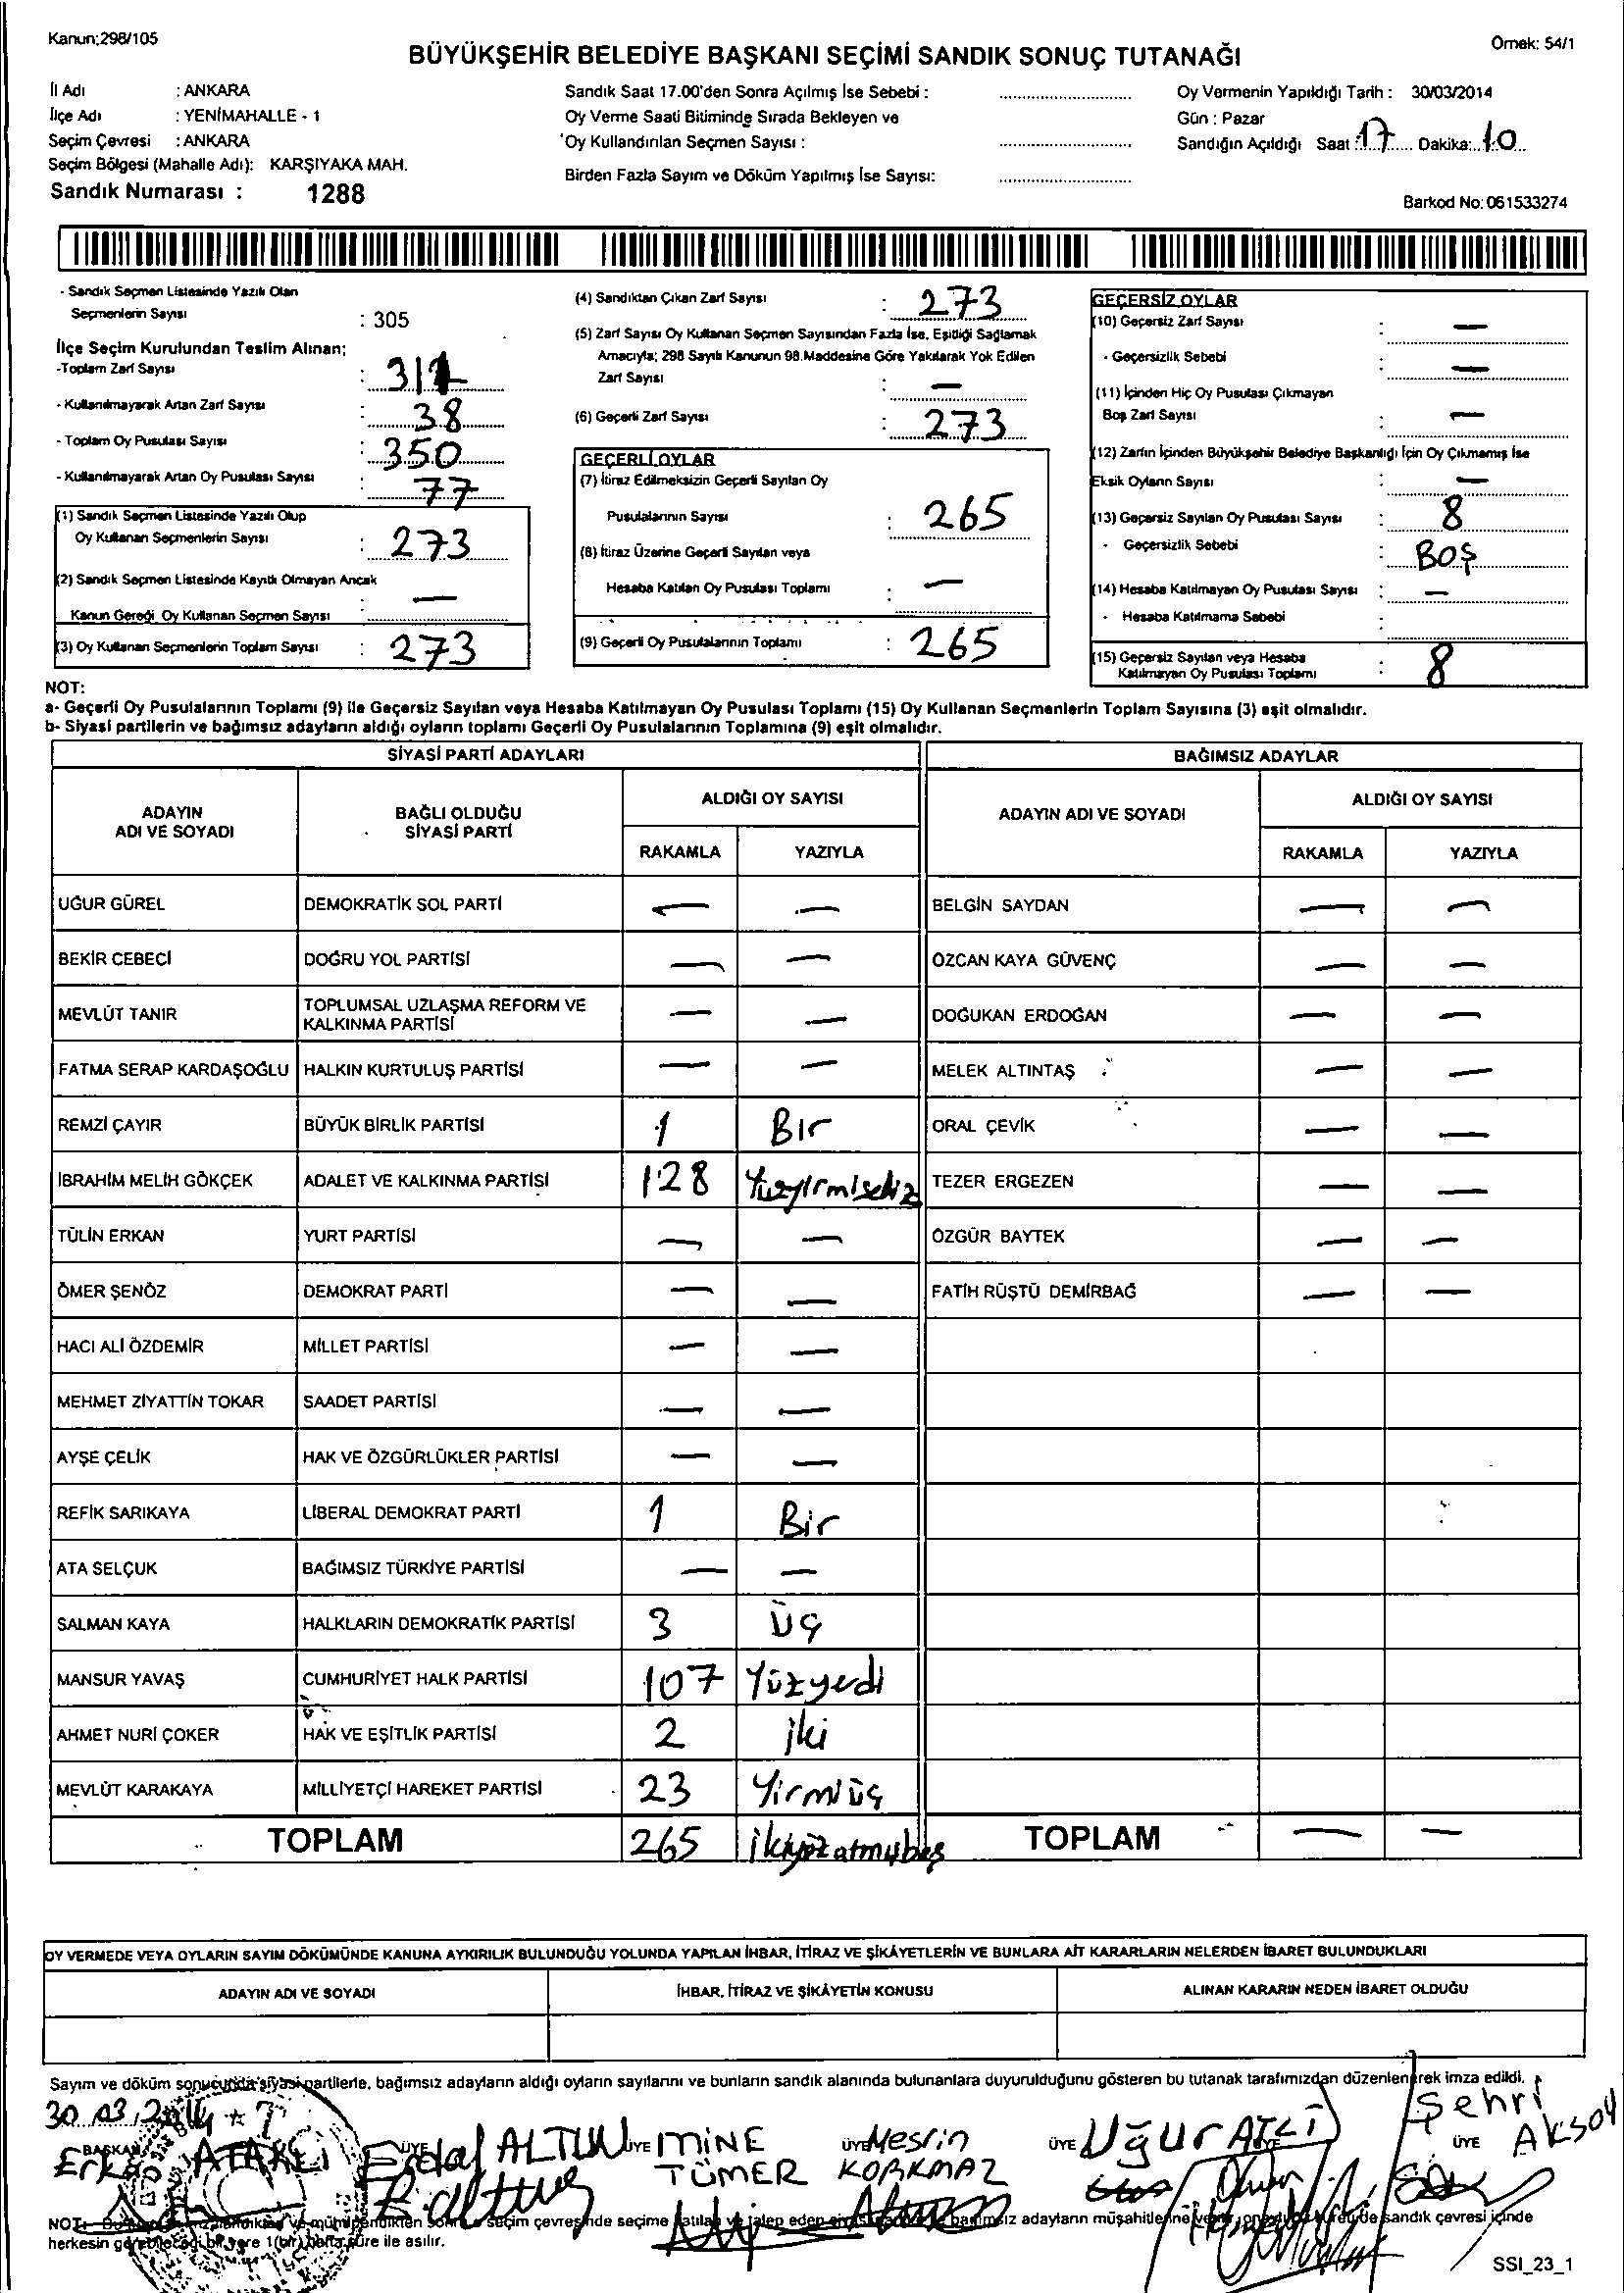 Kanun;298/105
Örnek: 54/1
BÜYÜKŞEHİR BELEDİYE BAŞKANI SEÇİMİ SANDIK SONUÇ TUTANAĞI
İl Adı : ANKARA
İlçe Adı : YENİMAHALLE - 1
Seçim Çevresi : ANKARA
Seçim Bölgesi (Mahalle Adı): KARŞIYAKA MAH.
Sandık Numarası : 1288
Sandık Saat 17.00'den Sonra Açılmış İse Sebebi :
Oy Verme Saati Bitiminde Sırada Bekleyen ve
Oy Kullandırılan Seçmen Sayısı :
Birden Fazla Sayım ve Döküm Yapılmış İse Sayısı:
Oy Vermenin Yapıldığı Tarih : 30/03/2014
Gün : Pazar
Sandığın Açıldığı Saat : 17 Dakika: 10
Barkod No: 061533274
- Sandık Seçmen Listesinde Yazılı Olan
Seçmenlerin Sayısı : 305
İlçe Seçim Kurulundan Teslim Alınan;
-Toplam Zarf Sayısı :
- Kullanılmayarak Artan Zarf Sayısı : 38
- Toplam Oy Pusulası Sayısı : 350
- Kullanılmayarak Artan Oy Pusulası Sayısı : 77
(1) Sandık Seçmen Listesinde Yazılı Olup
Oy Kullanan Seçmenlerin Sayısı : 273
(2) Sandık Seçmen Listesinde Kayıtlı Olmayan Ancak
Kanun Gereği Oy Kullanan Seçmen Sayısı : —
(3) Oy Kullanan Seçmenlerin Toplam Sayısı : 273
(4) Sandıktan Çıkan Zarf Sayısı : 273
(5) Zarf Sayısı Oy Kullanan Seçmen Sayısından Fazla İse, Eşitliği Sağlamak
Amacıyla; 298 Sayılı Kanunun 98.Maddesine Göre Yakılarak Yok Edilen
Zarf Sayısı : —
(6) Geçerli Zarf Sayısı : 273
GEÇERLİ OYLAR
(7) İtiraz Edilmeksizin Geçerli Sayılan Oy
Pusulalarının Sayısı : 265
(8) İtiraz Üzerine Geçerli Sayılan veya
Hesaba Katılan Oy Pusulası Toplamı : —
(9) Geçerli Oy Pusulalarının Toplamı : 265
GEÇERSİZ OYLAR
(10) Geçersiz Zarf Sayısı : —
- Geçersizlik Sebebi : —
(11) İçinden Hiç Oy Pusulası Çıkmayan
Boş Zarf Sayısı : —
(12) Zarfın İçinden Büyükşehir Belediye Başkanlığı İçin Oy Çıkmamış İse
Eksik Oyların Sayısı : —
(13) Geçersiz Sayılan Oy Pusulası Sayısı : 8
- Geçersizlik Sebebi : BOŞ
(14) Hesaba Katılmayan Oy Pusulası Sayısı : —
- Hesaba Katılmama Sebebi :
(15) Geçersiz Sayılan veya Hesaba
Katılmayan Oy Pusulası Toplamı : 8
NOT:
a- Geçerli Oy Pusulalarının Toplamı (9) ile Geçersiz Sayılan veya Hesaba Katılmayan Oy Pusulası Toplamı (15) Oy Kullanan Seçmenlerin Toplam Sayısına (3) eşit olmalıdır.
b- Siyasi partilerin ve bağımsız adayların aldığı oyların toplamı Geçerli Oy Pusulalarının Toplamına (9) eşit olmalıdır.
SİYASİ PARTİ ADAYLARI BAĞIMSIZ ADAYLAR
ADAYIN ADI VE SOYADI BAĞLI OLDUĞU SİYASİ PARTİ ALDIĞI OY SAYISI ADAYIN ADI VE SOYADI ALDIĞI OY SAYISI
RAKAMLA YAZIYLA RAKAMLA YAZIYLA
UĞUR GÜREL DEMOKRATİK SOL PARTİ — — BELGİN SAYDAN — —
BEKİR CEBECİ DOĞRU YOL PARTİSİ — — ÖZCAN KAYA GÜVENÇ — —
MEVLÜT TANIR TOPLUMSAL UZLAŞMA REFORM VE KALKINMA PARTİSİ — — DOĞUKAN ERDOĞAN — —
FATMA SERAP KARDAŞOĞLU HALKIN KURTULUŞ PARTİSİ — — MELEK ALTINTAŞ — —
REMZİ ÇAYIR BÜYÜK BİRLİK PARTİSİ 1 Bir ORAL ÇEVİK — —
İBRAHİM MELİH GÖKÇEK ADALET VE KALKINMA PARTİSİ 128 Yüzyirmisekiz TEZER ERGEZEN — —
TÜLİN ERKAN YURT PARTİSİ — — ÖZGÜR BAYTEK — —
ÖMER ŞENÖZ DEMOKRAT PARTİ — — FATİH RÜŞTÜ DEMİRBAĞ — —
HACI ALİ ÖZDEMİR MİLLET PARTİSİ — —
MEHMET ZİYATTİN TOKAR SAADET PARTİSİ — —
AYŞE ÇELİK HAK VE ÖZGÜRLÜKLER PARTİSİ — —
REFİK SARIKAYA LİBERAL DEMOKRAT PARTİ 1 Bir
ATA SELÇUK BAĞIMSIZ TÜRKİYE PARTİSİ — —
SALMAN KAYA HALKLARIN DEMOKRATİK PARTİSİ 3 Üç
MANSUR YAVAŞ CUMHURİYET HALK PARTİSİ 107 Yüzyedi
AHMET NURİ ÇOKER HAK VE EŞİTLİK PARTİSİ 2 iki
MEVLÜT KARAKAYA MİLLİYETÇİ HAREKET PARTİSİ 23 Yirmiüç
TOPLAM 265 ikiyüzatmışbeş TOPLAM — —
OY VERMEDE VEYA OYLARIN SAYIM DÖKÜMÜNDE KANUNA AYKIRILIK BULUNDUĞU YOLUNDA YAPILAN İHBAR, İTİRAZ VE ŞİKÂYETLERİN VE BUNLARA AİT KARARLARIN NELERDEN İBARET BULUNDUKLARI
ADAYIN ADI VE SOYADI İHBAR, İTİRAZ VE ŞİKÂYETİN KONUSU ALINAN KARARIN NEDEN İBARET OLDUĞU
Sayım ve döküm sonucunda siyasi partilerle, bağımsız adayların aldığı oyların sayılarını ve bunların sandık alanında bulunanlara duyurulduğunu gösteren bu tutanak tarafımızdan düzenlenerek imza edildi.
30.03.2014
BAŞKAN ÜYE Erdal ALTUN ÜYE MİNE TÜMER ÜYE Nesrin KORKMAZ ÜYE Uğur ATLI ÜYE Şehri Aksoy
seçim çevresinde seçime katılan ve talep eden bağımsız adayların müşahitlerine sandık çevresi içinde
herkesin görebileceği bir yere 1(bir) hafta süre ile asılır.
SSI_23_1